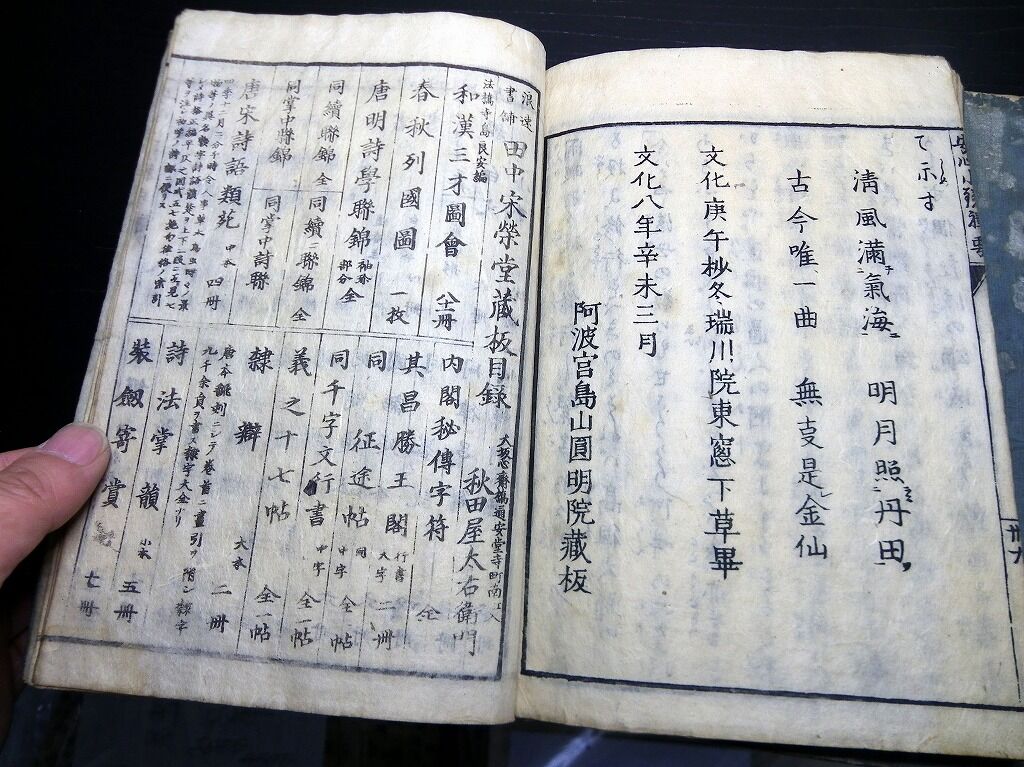 て示す
清風滿氣海 明月照丹田
古今唯一曲 無孔是金仙
文化庚午杪冬瑞川院東窓下草畢
文化八年辛未三月
阿波宮島山圓明院藏板
丗九
浪速書舗 田中宋榮堂藏板目錄
大坂心齋橋通安堂寺町南エ入
秋田屋太右衛門
法橋寺島良安編
和漢三才圖會 全八十一冊
春秋列國圖 一枚
唐明詩學聯錦 袖珍部分 全
同續聯錦 全
同續二聯錦 全
同掌中聯錦
同掌中詩聯
唐宋詩語類苑 中本 四冊
内閣秘傳字符 全
其昌勝王閣 行書大字 二冊
同征途帖 同中字 全一帖
同千字文行書 中字 全一帖
義之十七帖 全一帖
隸辨 大本 二冊
唐本翻刻ニシテ巻首ニ畫引ヲ附シ隸字
九千余員ヲ書ス隸字大全ナリ
詩法掌韻 小本 五冊
裝劍奇賞 七冊